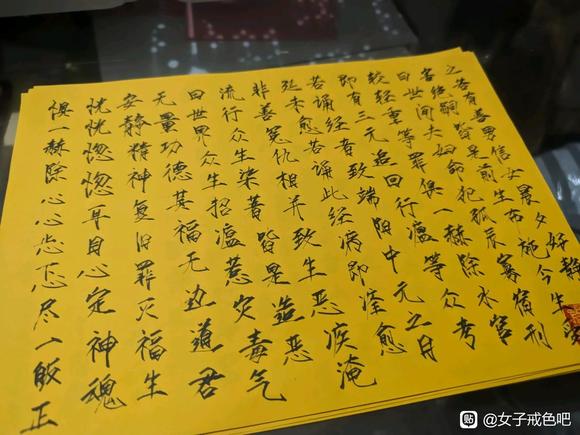 之若有善男信女晨夕好静
绝嗣皆是前生布施今生
曰世间夫妇命犯孤辰寡宿刑
较轻重等罪俱一赫除水官
即有三元追曰行瘟等众考
若诵经者致端阳中元之日
延本愈若诵此经病即痊愈
非善冤仇相并致生恶疾淹
流行众生染著皆是造恶
曰世界众生招瘟惹灾毒气
无量功德其福无边道君
安静精神复旧罪灭福生
恍恍惚惚耳自心定神魂
俱一赫除心心忐忑尽一皈正
贴 @女子戒色吧